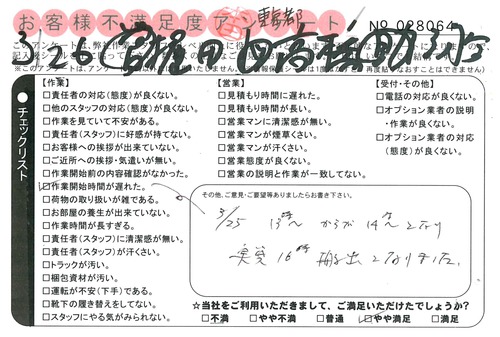 お客様不満足度アンケート
東京都
No 028064
3/26
チェックリスト
【作業】
□責任者の対応(態度)が良くない。
□他のスタッフの対応(態度)が良くない。
□作業を見ていて不安がある。
□責任者(スタッフ)に好感が持てない。
□お客様への挨拶が出来ていない。
□ご近所への挨拶・気遣いが無い。
□作業開始前の内容確認がなかった。
☑作業開始時間が遅れた。
□荷物の取り扱いが雑である。
□お部屋の養生が出来ていない。
□作業時間が長すぎる。
□責任者(スタッフ)に清潔感が無い。
□責任者(スタッフ)が汗くさい。
□トラックが汚い。
□梱包資材が汚い。
□運転が不安(下手)である。
□靴下の履き替えをしてない。
□スタッフにやる気がみられない。
【営業】
□見積もり時間に遅れた。
□見積もり時間が長い。
□営業マンに清潔感が無い。
□営業マンが煙草くさい。
□営業マンが汗くさい。
□営業態度が良くない。
□営業の説明と作業が一致してない。
【受付・その他】
□電話の対応が良くない。
□オプション業者の説明・作業が良くない。
□オプション業者の対応(態度)が良くない。
その他、ご意見・ご要望等ありましたらお書き下さい。
3/25 13時〜からが14時〜となり
実質16時搬出となりました。
☆当社をご利用いただきまして、ご満足いただけたでしょうか?
□不満 □やや不満 □普通 ☑やや満足 □満足